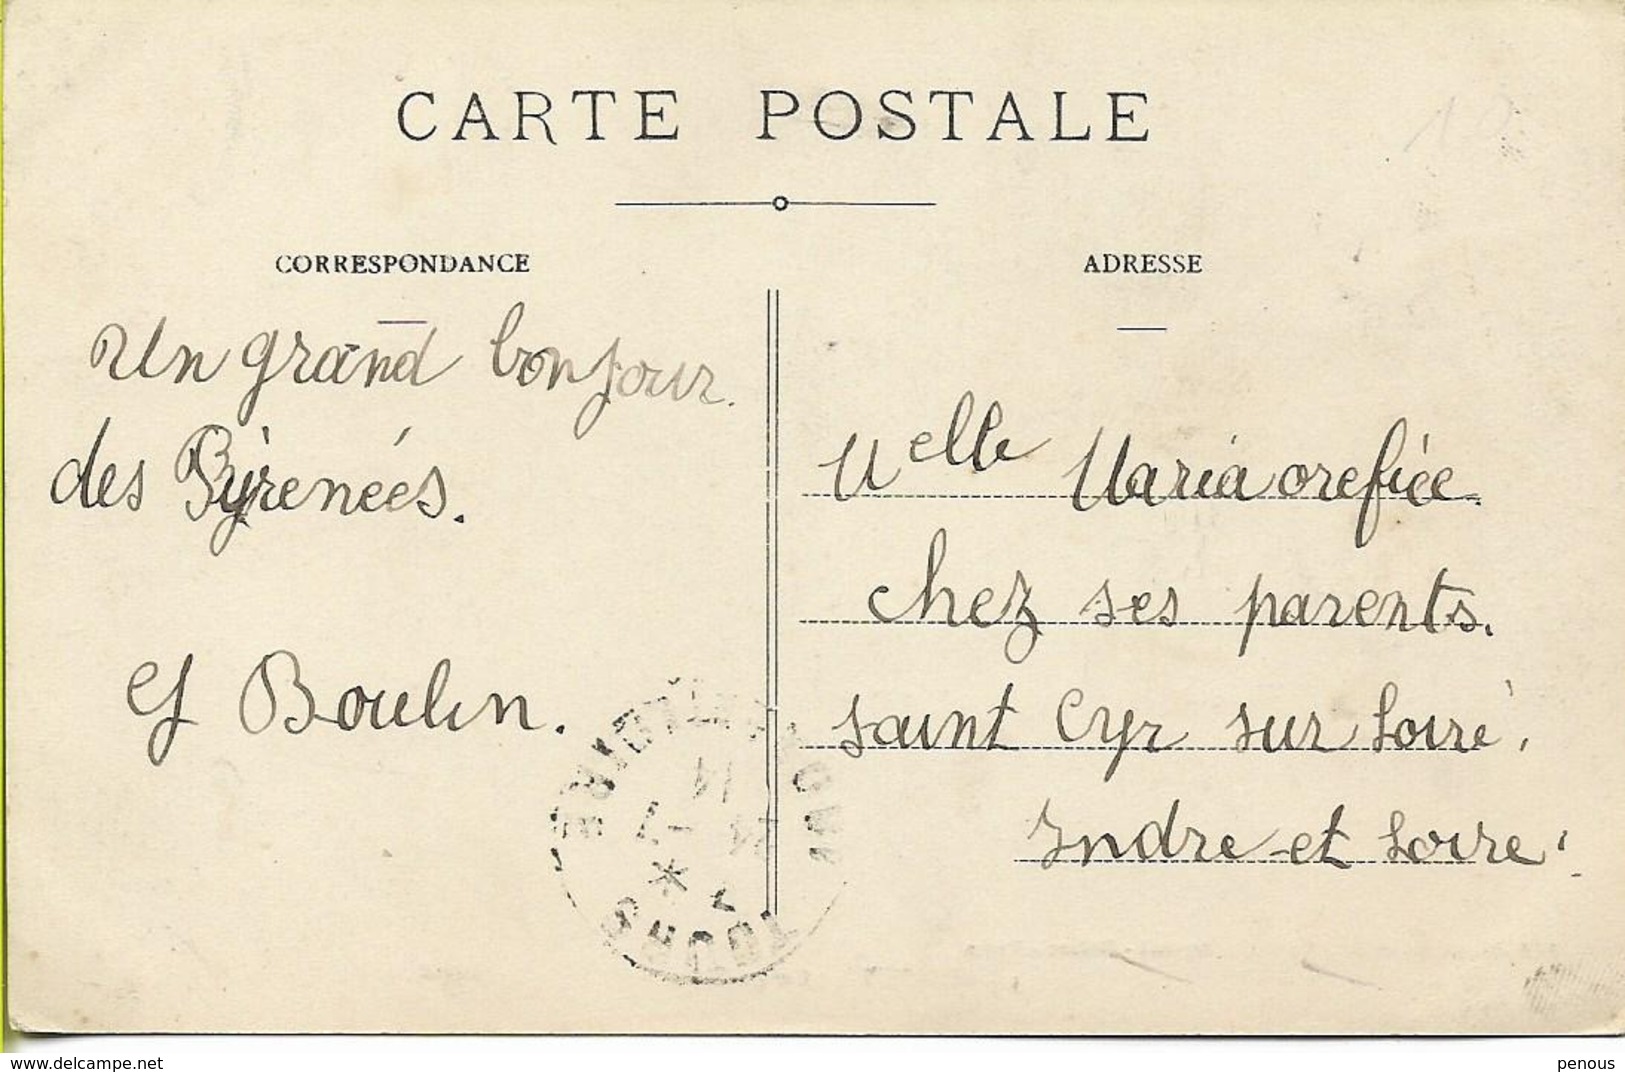 CARTE POSTALE
CORRESPONDANCE
ADRESSE
Un grand bonjour.
des Pyrenées.
Boulin.
Melle Maria orefice
chez ses parents.
saint Cyr sur Loire.
Indre et Loire
TOURS
www.delcampe.net
penous